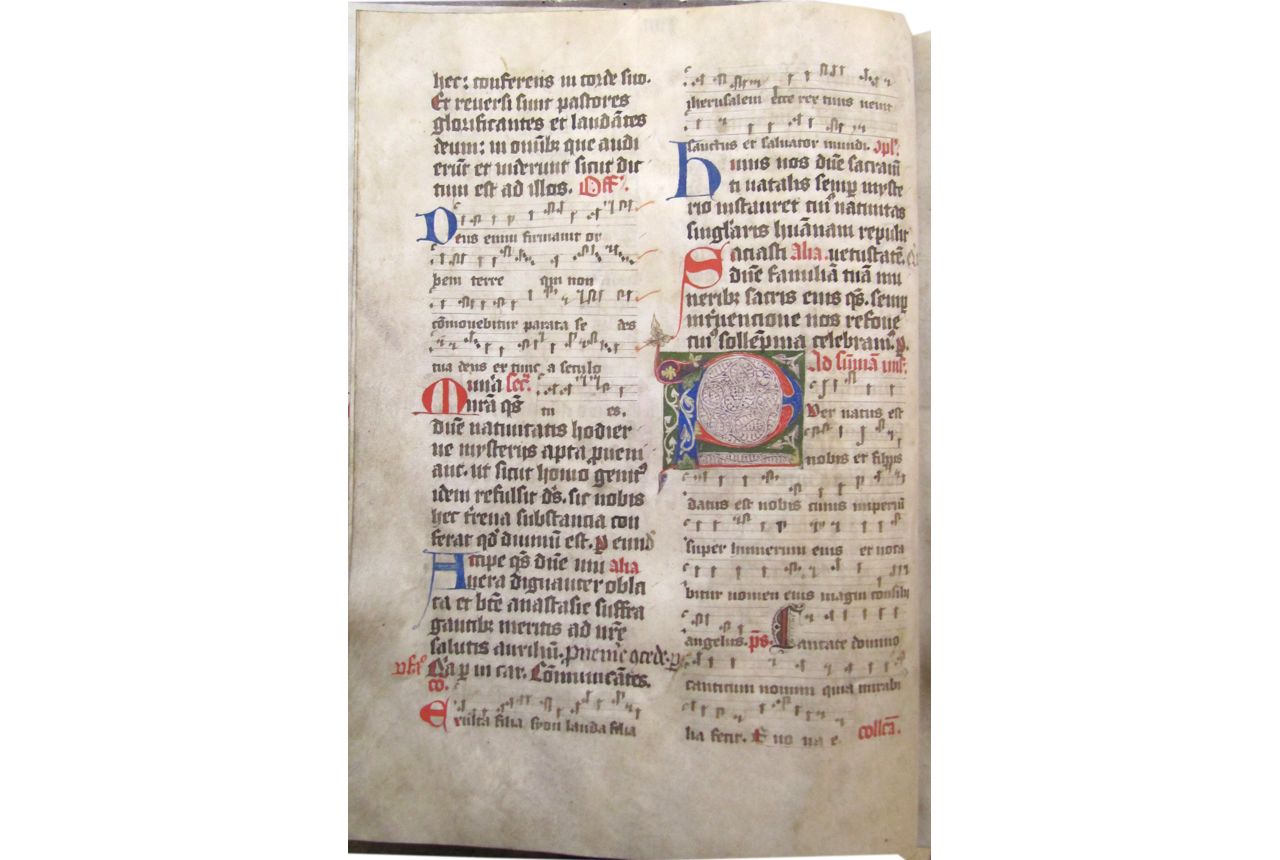 hec: conferens in corde suo.
Et reuersi sunt pastores
glorificantes et laudātes
deum: in omīb; que audi
erūt et viderunt sicut dic
tum est ad illos. Off'.
Deus enim firmauit or
bem terre qui non
cōmouebitur parata se des
tua deus ex tunc a seculo
Mun'a secr̄. tu es.
nr̄a qs̄
dn̄e natiuitatis hodier
ne mysterijs apta ꝓueni
ant. ut sicut homo genit'
idem refulsit ds̄. sic nobis
hec t'rena substancia con
ferat qd̄ diuinū est. p eund'
Accipe qs̄ dn̄e mu alia
nera dignanter obla
ta et btē anastasie suffra
gantib; meritis ad nr̄e
salutis auxiliū. ꝓuenire ↄcede. p
Q̄a p in car. Cōmunicātes.
co.
Exulta filia syon lauda filia
iherusalem ecce rex tuus venit
sanctus et saluator mundi. 9pl'.
Huius nos dn̄e sacram̄
ti natalis semp myste
rio instauret cui' natiuitas
sing'laris hūanam repulit
Saciasti alia. uetustatē.
dn̄e familiā tuā mu
nerib; sacris eius qs̄. semp
int'uencione nos refoue
cui' sollēpnia celebram'. p.
Ad sūmā mis'.
Puer natus est
nobis et filius
datus est nobis cuius imperiū
super humerum eius et voca
bitur nomen eius magni consilij
angelus. ps̄. Cantate domino
canticum nouum quia mirabi
lia fecit. E uo ua e. collcā.